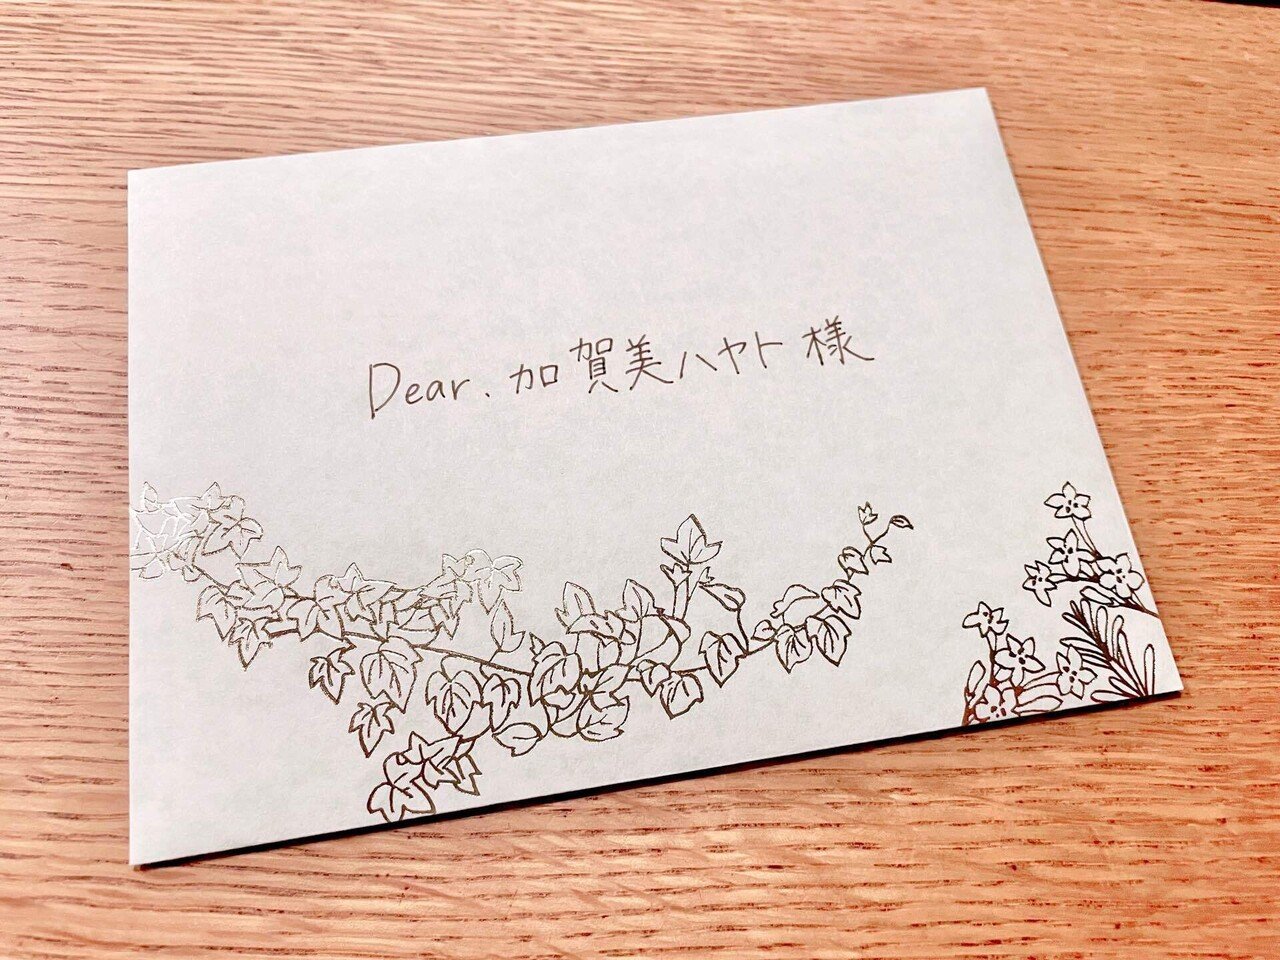 Dear. 加賀美ハヤト 様